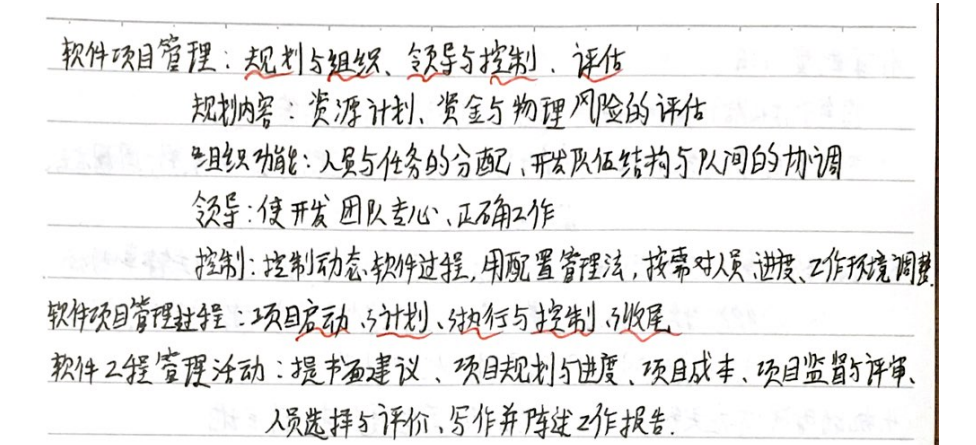 软件项目管理：规划与组织、领导与控制、评估
规划内容：资源计划、资金与物理风险的评估
组织功能：人员与任务的分配、开发队伍结构与队间的协调
领导：使开发团队专心、正确工作
控制：控制动态软件过程，用配置管理法，按需对人员、进度、工作环境调整.
软件项目管理过程：项目启动、计划、执行与控制、收尾
软件工程管理活动：提书面建议、项目规划与进度、项目成本、项目监督与评审、
人员选择与评价、写作并陈述工作报告.